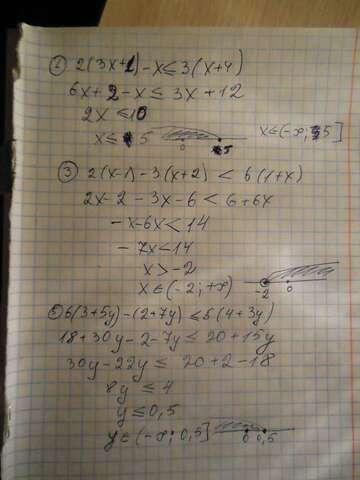 ② 2(3x+1)-x≤3(x+4)
6x+2-x≤3x+12
2x≤10
x≤5 0 5 x∈(-∞;5]
③ 2(x-1)-3(x+2)<6(1+x)
2x-2-3x-6<6+6x
-x-6x<14
-7x<14
x>-2
x∈(-2;+∞) -2 0
⑤ 6(3+5y)-(2+7y)≤5(4+3y)
18+30y-2-7y≤20+15y
30y-22y≤20+2-18
8y≤4
y≤0,5
y∈(-∞;0,5] 0 0,5